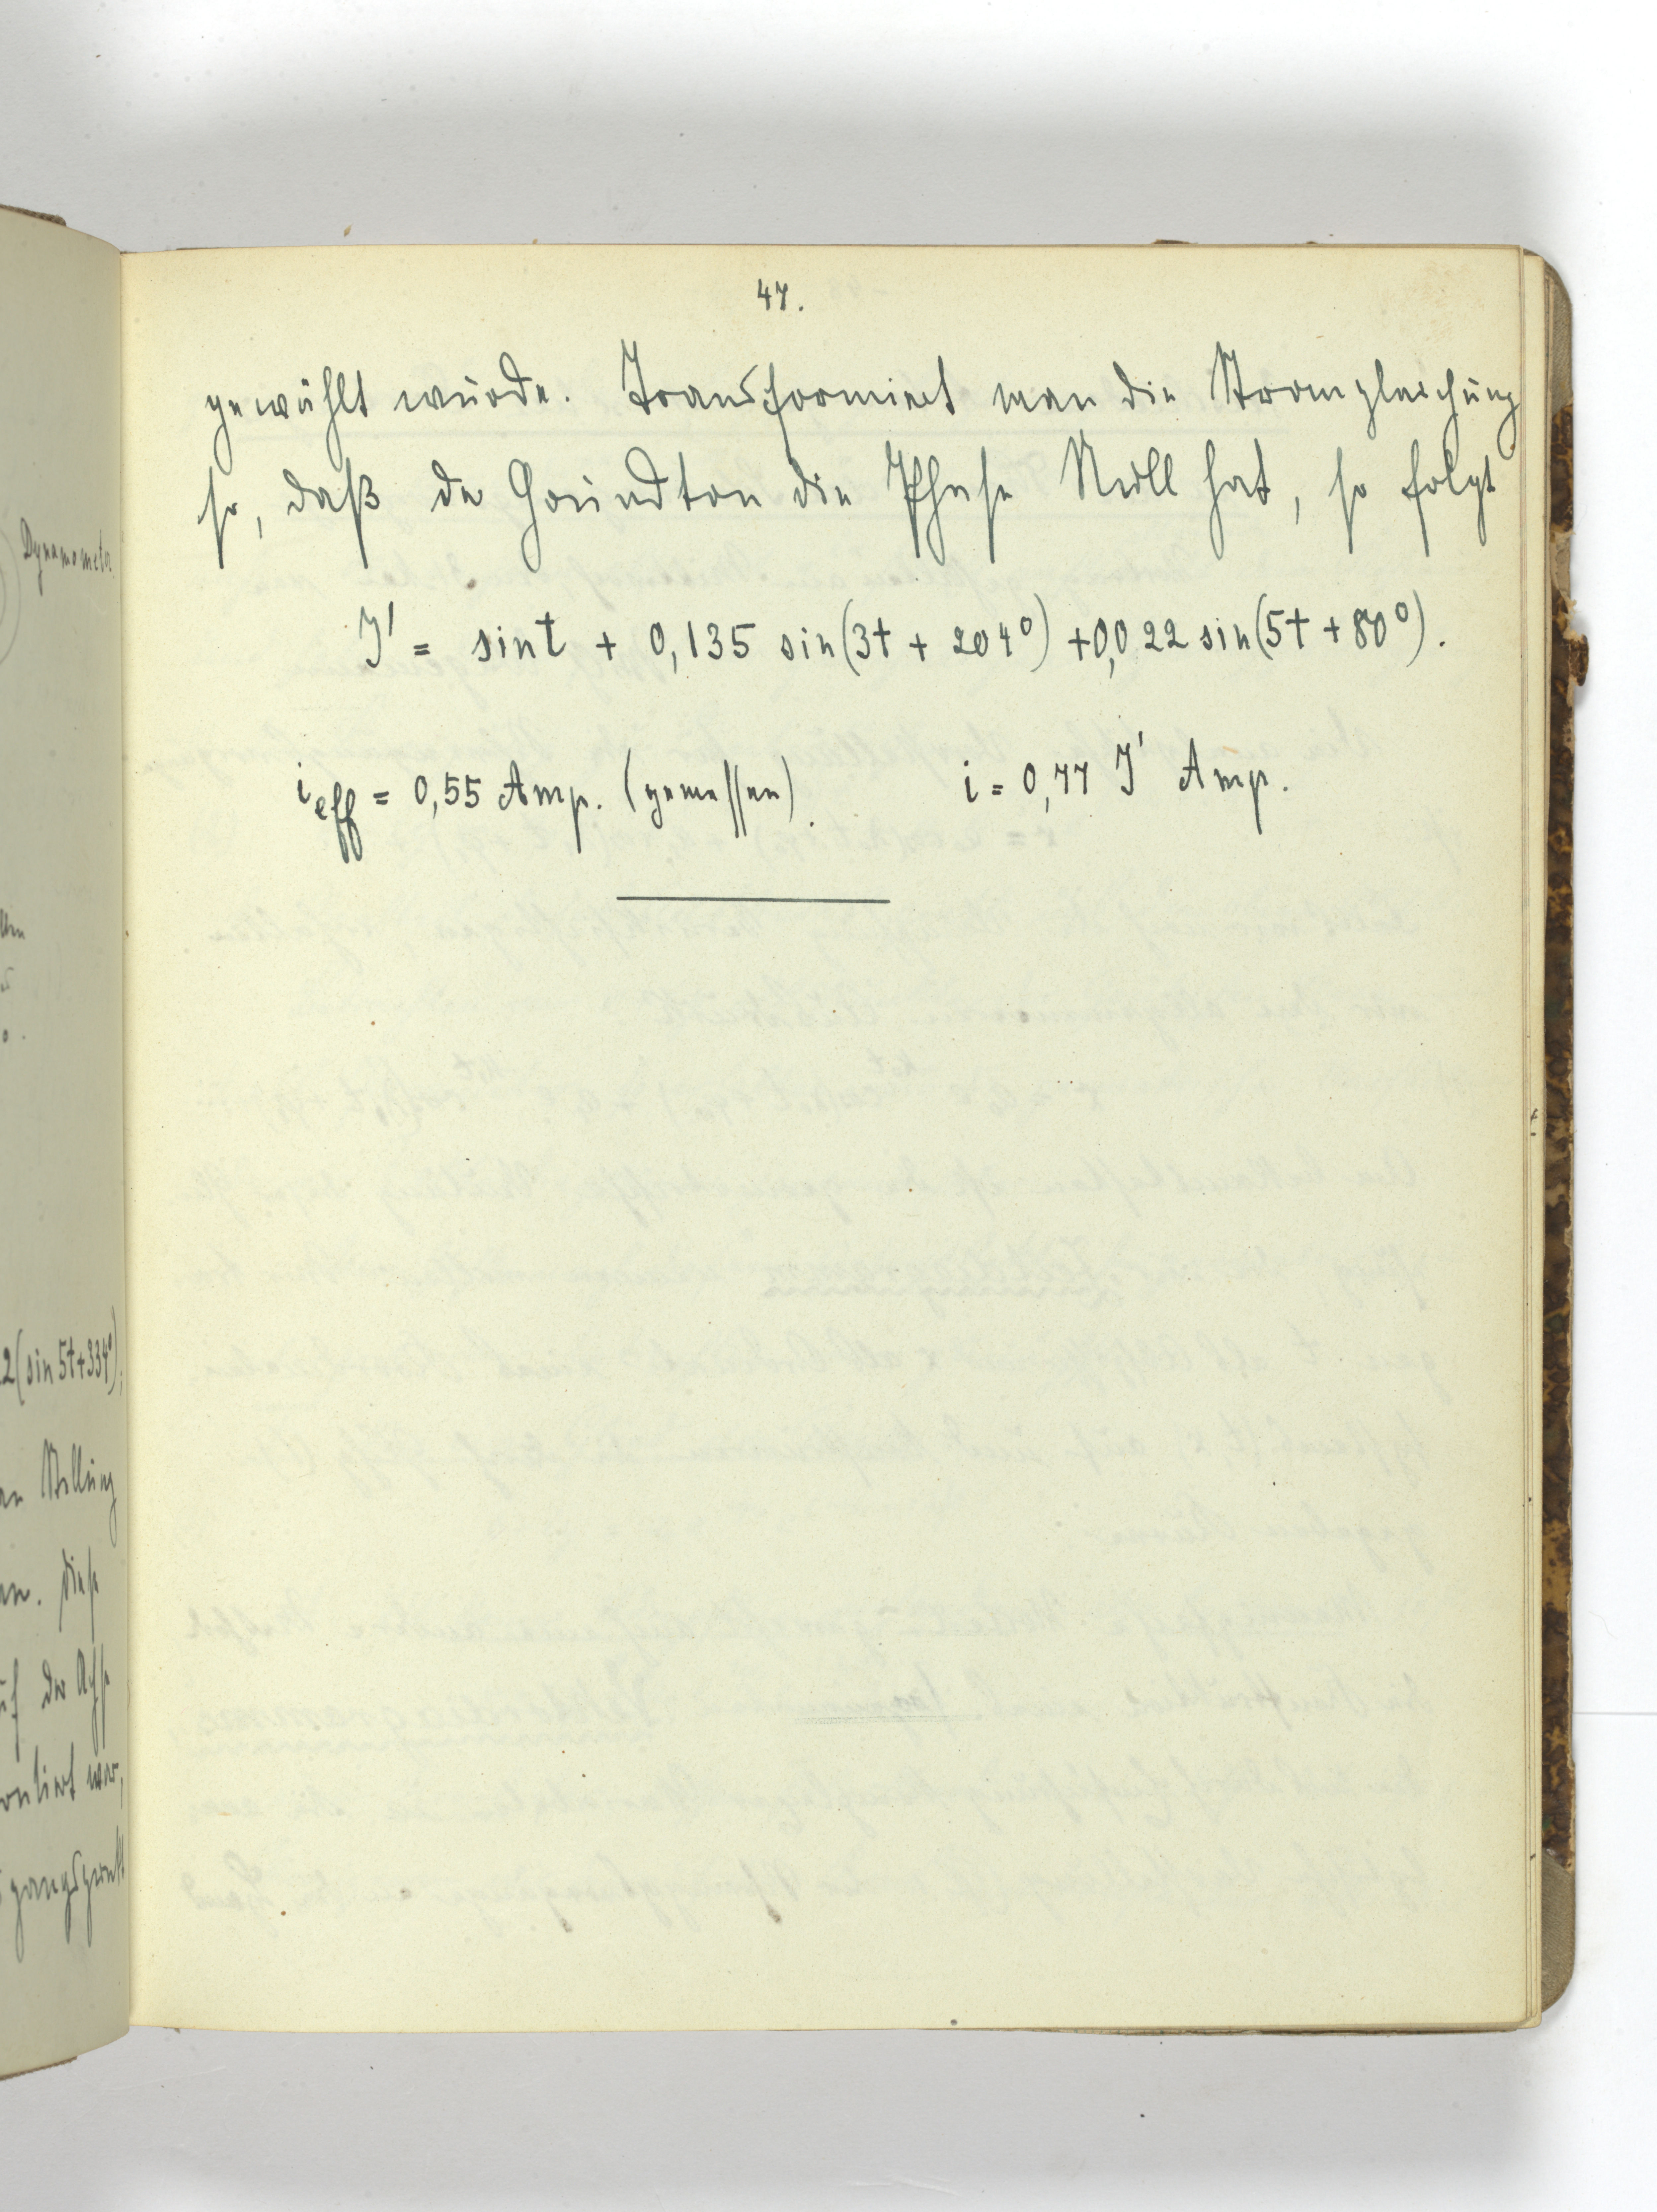 Dynamometer
2(sin 5t+334°);
Stellung
. Diese
der Achse
war,
gangspunkt
47.
gewählt wurde. Transformiert man die Stromgleichung
so, daß der Grundton die Phase Null hat, so folgt
J' = sin t + 0,135 sin(3t + 204°) + 0,022 sin(5t + 80°).
i eff = 0,55 Amp. (gemessen). i = 0,77 J' Amp.